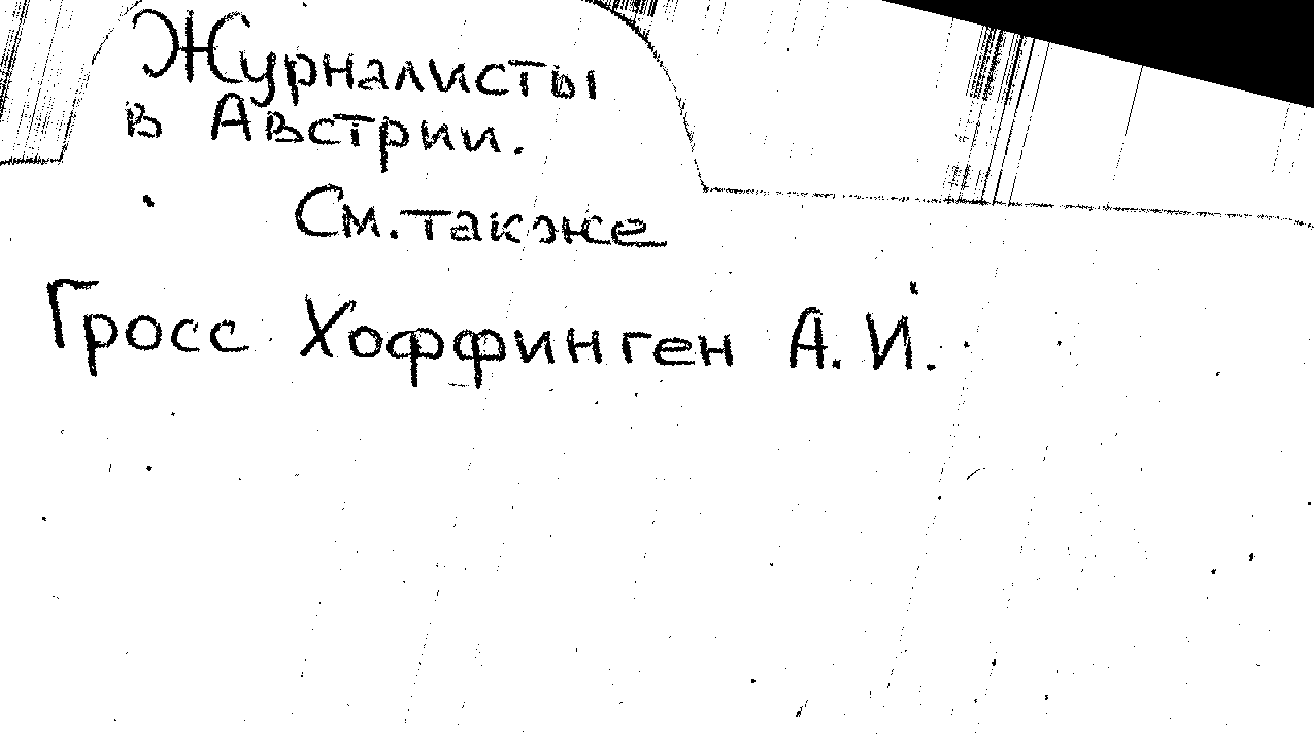 Журналисты
в Австрии.
См. также
Гросс Хоффинген А. И.